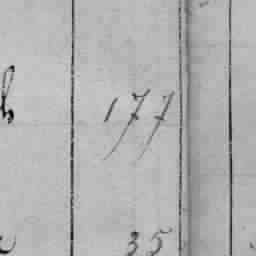 177
35